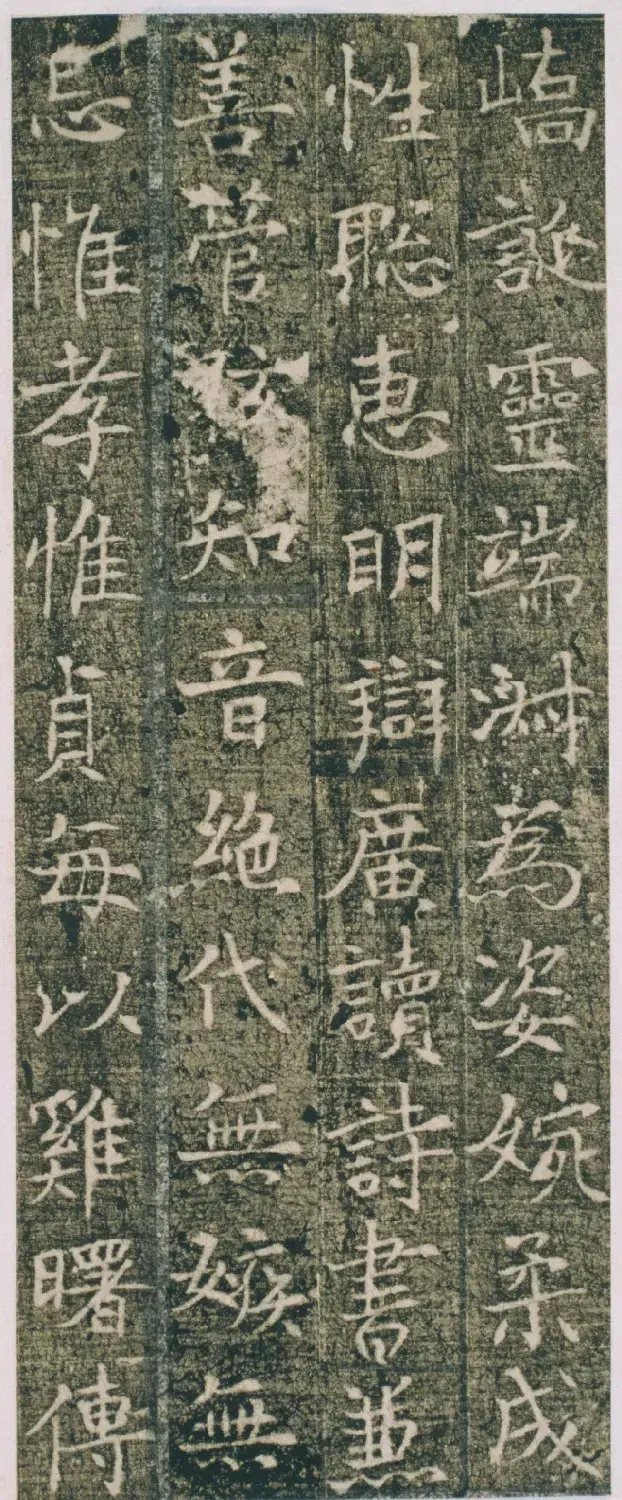 嶠誕靈端淑為姿婉柔成
性聡惠明辯廣讀詩書兼
善管弦知音絶代無嫉無
忌惟孝惟貞每以雞曙傳